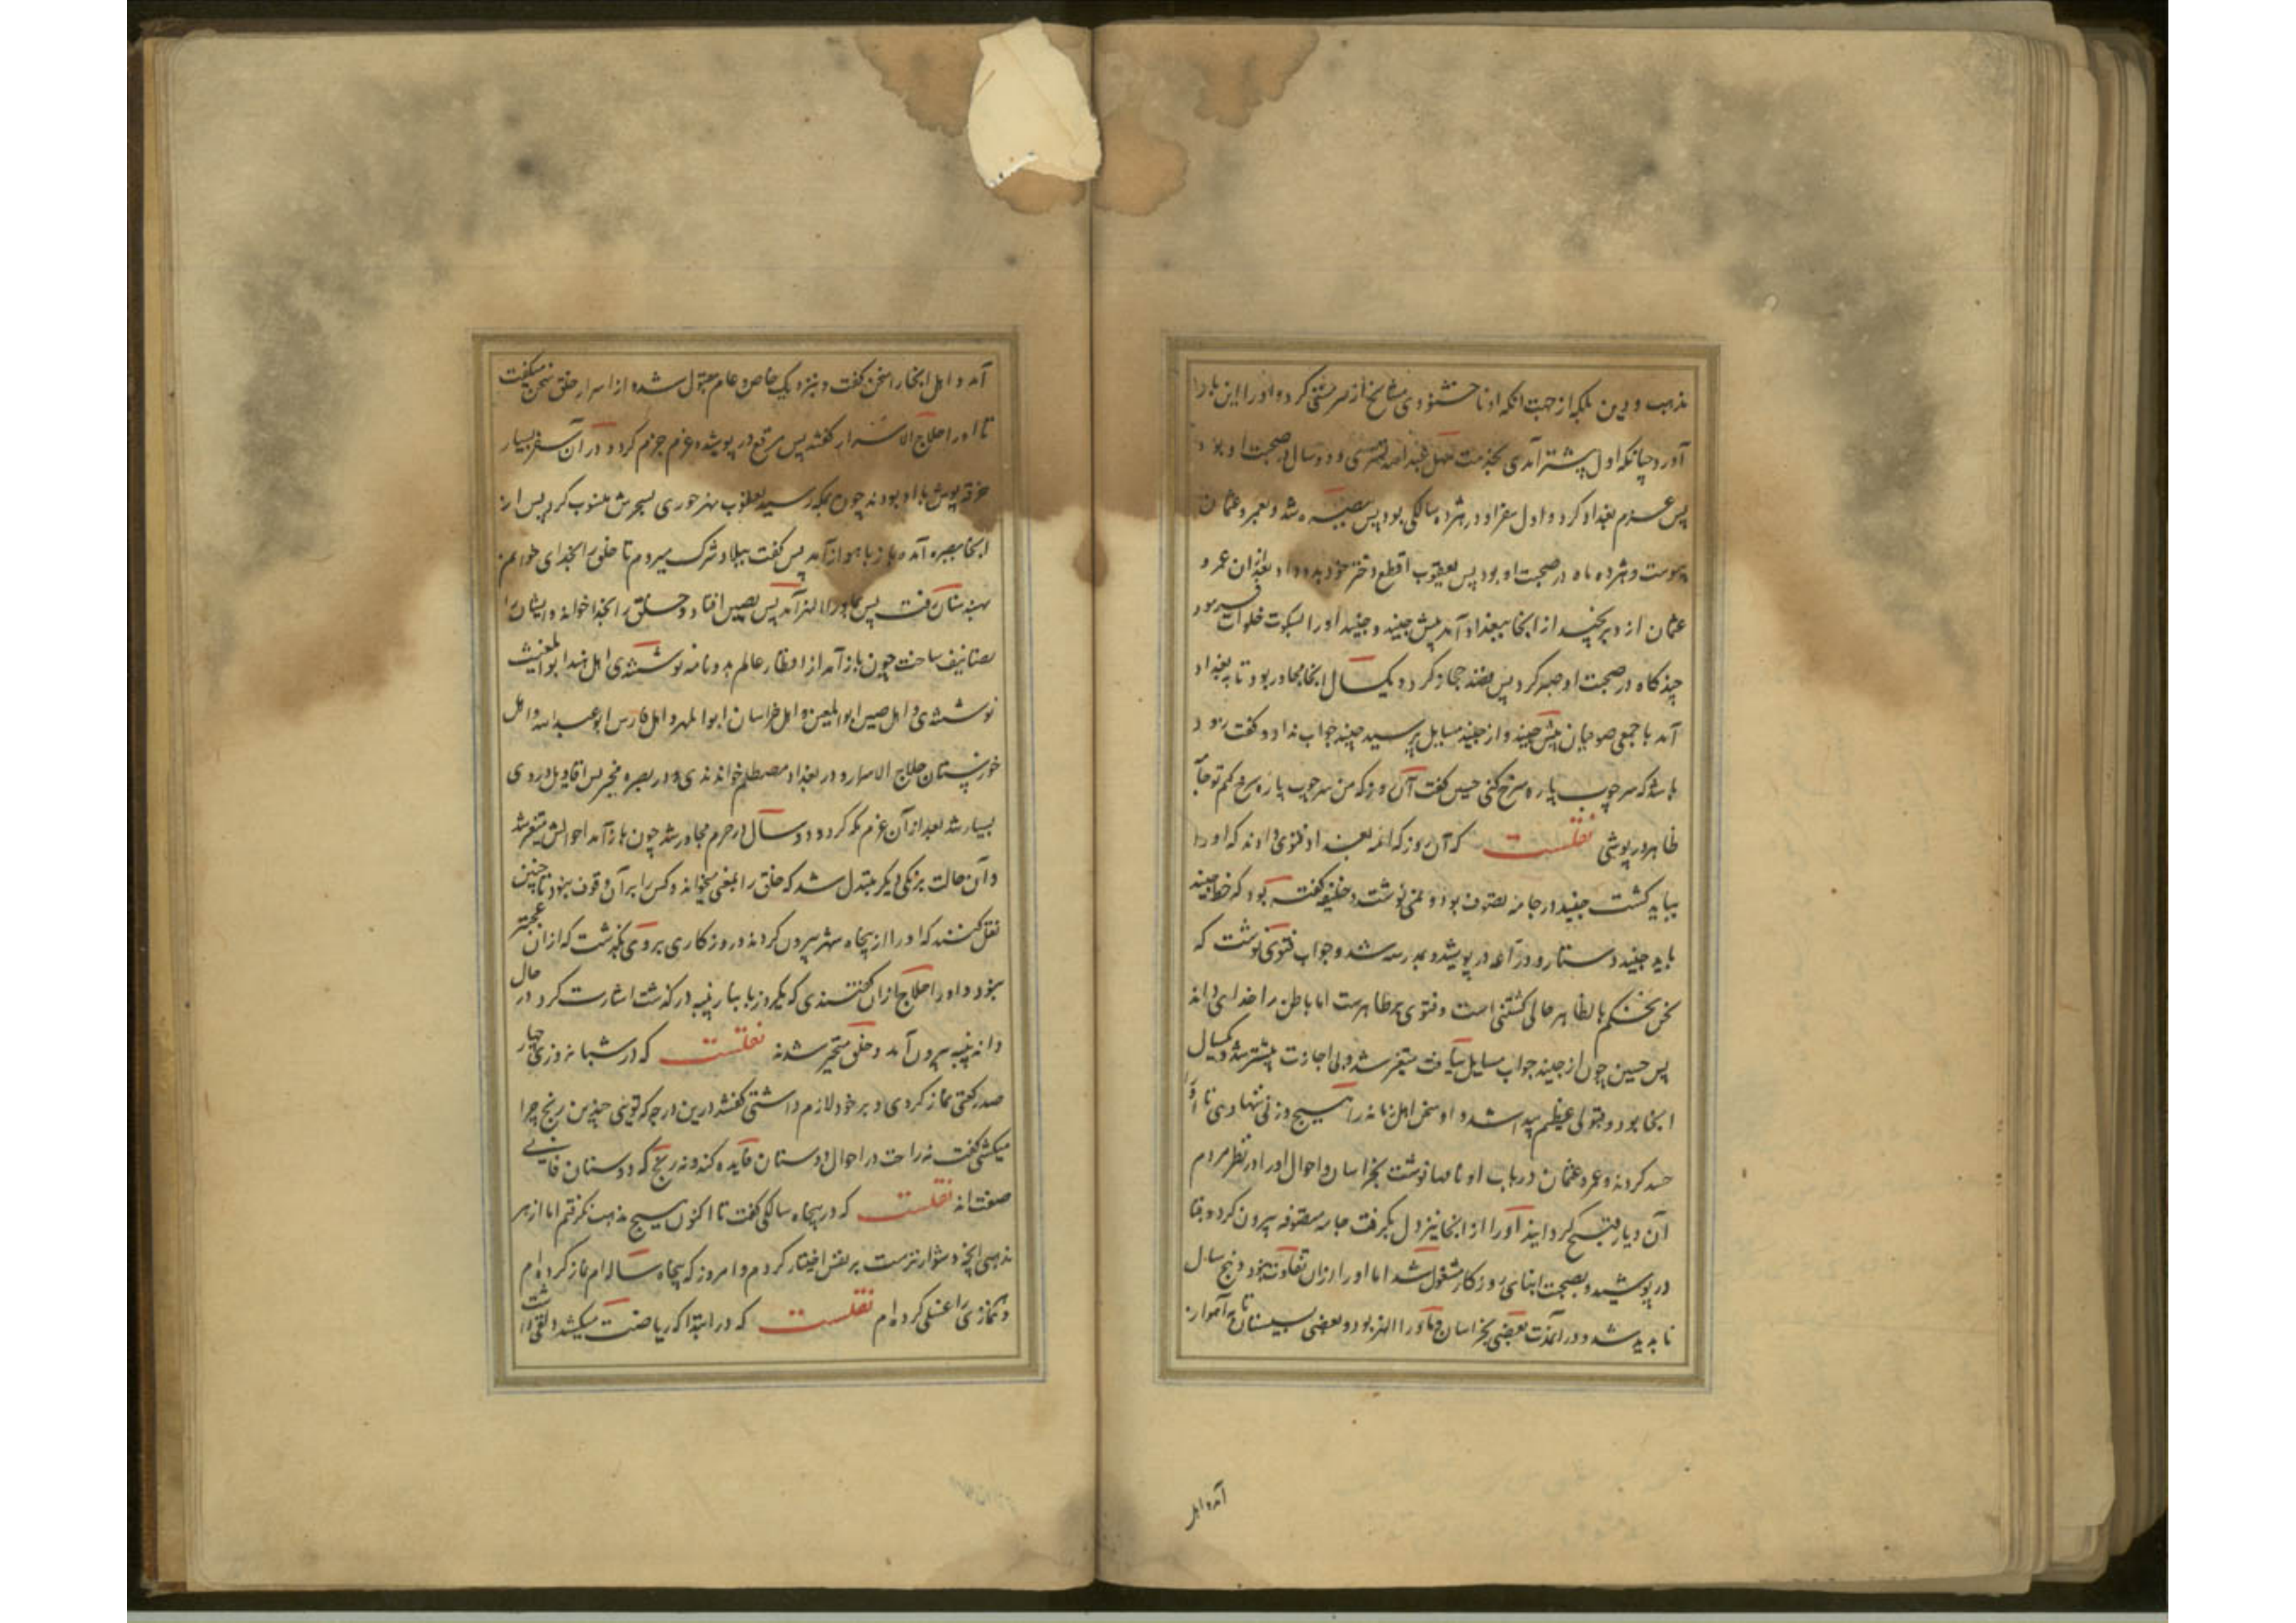 مذهب و دین بلکه از جهت آنکه او ناخشنودی مشایخ از سرمستی کرد و او را این بار
آورد چنانکه اول بتستر آمدی بخدمت سهل عبدالله تستری و دو سال در صحبت او بود
پس عزم بغداد کرد و اول سفر او در هژده سالگی بود پس ببصره شد و بعمرو عثمان
پیوست و هژده ماه در صحبت او بود پس یعقوب اقطع دختر خود بدو داد بعد از آن عمرو
عثمان از و برنجید از آنجا ببغداد آمد پیش جنید و جنید او را بسکوت و خلوات فرمود
چند گاه در صحبت او صبر کرد پس قصد حجاز کرد و یک سال آنجا مجاور بود تا ببغداد
آمد با جمعی صوفیان پیش جنید و از جنید مسایل پرسید جنید جواب نداد و گفت زود
باشد که سر چوب پاره سرخ کنی حسین گفت آن روز که من سر چوب پاره سرخ کنم تو جامه
ظاهر در پوشی نقلست که آن روز که ائمه بغداد فتوی دادند که او را
بباید کشت جنید در جامه تصوف بود و نمی نوشت و خلیفه گفته بود که خط جنید
باید جنید دستار و دراعه در پوشید و بمدرسه شد و جواب فتوی نوشت که
نحن نحکم بالظاهر حالی کشتنی است و فتوی بر ظاهرست اما باطن را خدای داند
پس حسین چون از جنید جواب مسایل نیافت متغیر شد و بی اجازت بتستر شد و یکسال
آنجا بود و قبولی عظیم پیدا شد و او سخن اهل زمانه را هیچ وزنی ننهادی تا او را
حسد کردند و عمرو عثمان در باب او نامها نوشت بخراسان و احوال او در نظر مردم
آن دیار قبیح گردانید او را از آنجا نیز دل بگرفت جامه متصوفه بیرون کرد و قبا
در پوشید و بصحبت ابنای روزگار مشغول شد اما او را از آن تفاوت نبود و پنج سال
ناپدید شد و در آن مدت بعضی بخراسان و ماوراالنهر بود و بعضی بسیستان تا باهواز
آمد و اهل
آمد و اهل آنجا را سخن گفت و بنزدیک خاص و عام مقبول شد و از اسرار خلق سخن میگفت
تا او را حلاج الاسرار گفتند پس مرقع در پوشید و عزم حرم کرد و در آن سفر بسیار
خرقه پوش با او بودند چون بمکه رسید یعقوب نهرجوری بسحرش منسوب کرد پس از
آنجا ببصره آمد و باز باهواز آمد پس گفت ببلاد شرک میروم تا خلق را بخدای خوانم
بهندستان رفت پس بماوراالنهر آمد پس بصین افتاد و خلق را بخدا خواند و ایشان را
تصانیف ساخت چون باز آمد از اقطار عالم بدو نامه نوشتندی اهل هند ابوالمغیث
نوشتندی و اهل صین ابوالمعین و اهل خراسان ابوالمهر و اهل فارس ابوعبدالله و اهل
خوزستان حلاج الاسرار و در بغداد مصطلم خواندندی و در بصره مخبر پس اقاویل در وی
بسیار شد بعد از آن عزم مکه کرد و دو سال در حرم مجاور شد چون باز آمد احوالش متغیر شد
و آن حالت برنگی دیگر مبتدل شد که خلق را بمعنی میخواند و کس را بر آن وقوف نبود تا چنین
نقل کنند که او را از پنجاه شهر بیرون کردند و روزگاری بر وی بگذشت که از آن عجبتر
نبود و او را حلاج از آن گفتندی که یکروز بانبار پنبه در گذشت اشارت کرد در حال
دانه پنبه بیرون آمد و خلق متحیر شدند نقلست که در شبانه روزی چهار
صد رکعتی نماز کردی و بر خود لازم داشتی گفتند درین درجه که تویی چندین رنج چرا
میکشی گفت نه راحت در احوال دوستان فایده کند و نه رنج که دوستان فانی
صفتانند نقلست که در پنجاه سالگی گفت تا اکنون هیچ مذهب نگرفتم اما از هر
مذهبی آنچه دشوارترست بر نفس اختیار کردم و امروز که پنجاه ساله ام نماز کرده ام
و نمازی را غسلی کرده ام نقلست که در ابتدا که ریاضت میکشید دلقی داشت